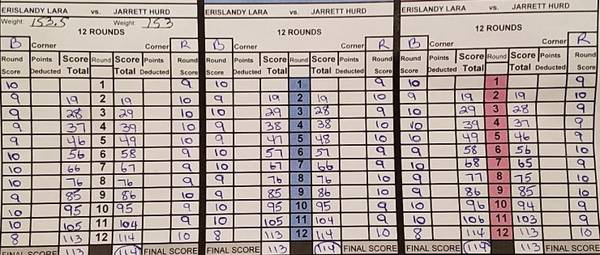 ERISLANDY LARA vs. JARRETT HURD
Weight: 153.5 Weight: 153
12 ROUNDS
B Corner Corner R
Round Score Points Deducted Score Total Round Score Total Points Deducted Round Score
10 1 9
9 19 2 19 10
9 28 3 29 10
9 37 4 39 10
9 46 5 49 10
10 56 6 58 9
10 66 7 67 9
10 76 8 76 9
9 85 9 86 10
10 95 10 95 9
10 105 11 104 9
8 113 12 114 10
FINAL SCORE 113 114 FINAL SCORE
ERISLANDY LARA vs. JARRETT HURD
12 ROUNDS
B Corner Corner R
Round Score Points Deducted Score Total Round Score Total Points Deducted Round Score
10 1 9
9 19 2 19 10
10 29 3 28 9
9 38 4 38 10
9 47 5 48 10
10 57 6 57 9
10 67 7 66 9
9 76 8 76 10
9 85 9 86 10
10 95 10 95 9
10 105 11 104 9
8 113 12 114 10
FINAL SCORE 113 114 FINAL SCORE
ERISLANDY LARA vs. JARRETT HURD
12 ROUNDS
B Corner Corner R
Round Score Points Deducted Score Total Round Score Total Points Deducted Round Score
10 1 9
9 19 2 19 10
10 29 3 28 9
10 39 4 37 9
10 49 5 46 9
9 58 6 56 10
10 68 7 65 9
9 77 8 75 10
9 86 9 85 10
10 96 10 94 9
10 106 11 103 9
8 114 12 113 10
FINAL SCORE 114 113 FINAL SCORE